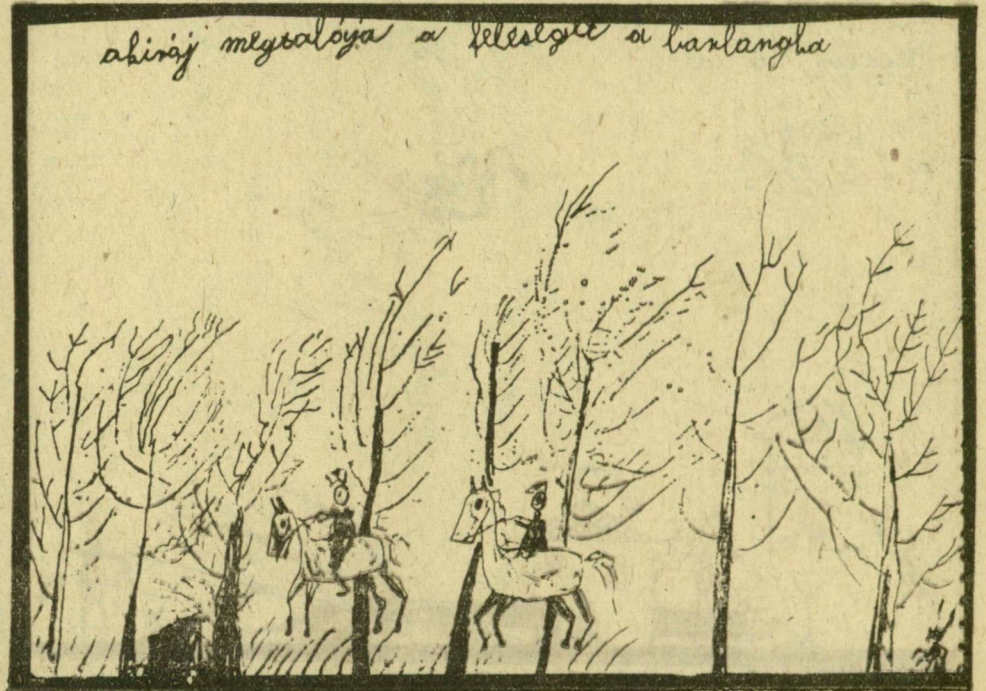 akiráj megtalálja a feleségét a barlangba